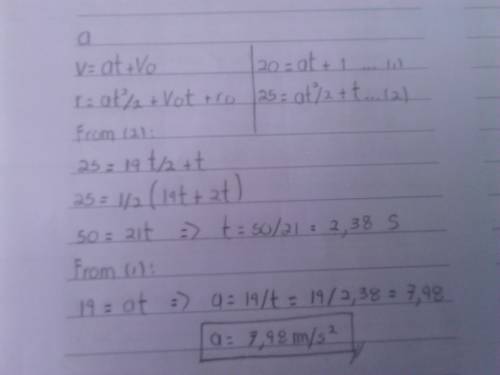 a
v = at + V₀ | 20 = at + 1 ... (1)
r = at²/2 + V₀t + r₀ | 25 = at²/2 + t ... (2)
From (2):
25 = 19t/2 + t
25 = 1/2 (19t + 2t)
50 = 21t => t = 50/21 = 2,38 S
From (1):
19 = at => a = 19/t = 19/2,38 = 7,98
a = 7,98 m/s²